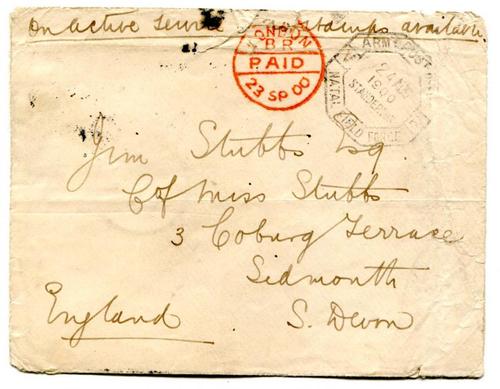 On active service stamps available
LONDON
B R
PAID
23 SP 00
ARMY POST
1900
STANDERTON
NATAL FIELD FORCE
Jim Stubbs Esq.
C/of Miss Stubbs
3 Coburg Terrace
Sidmouth
S. Devon
England